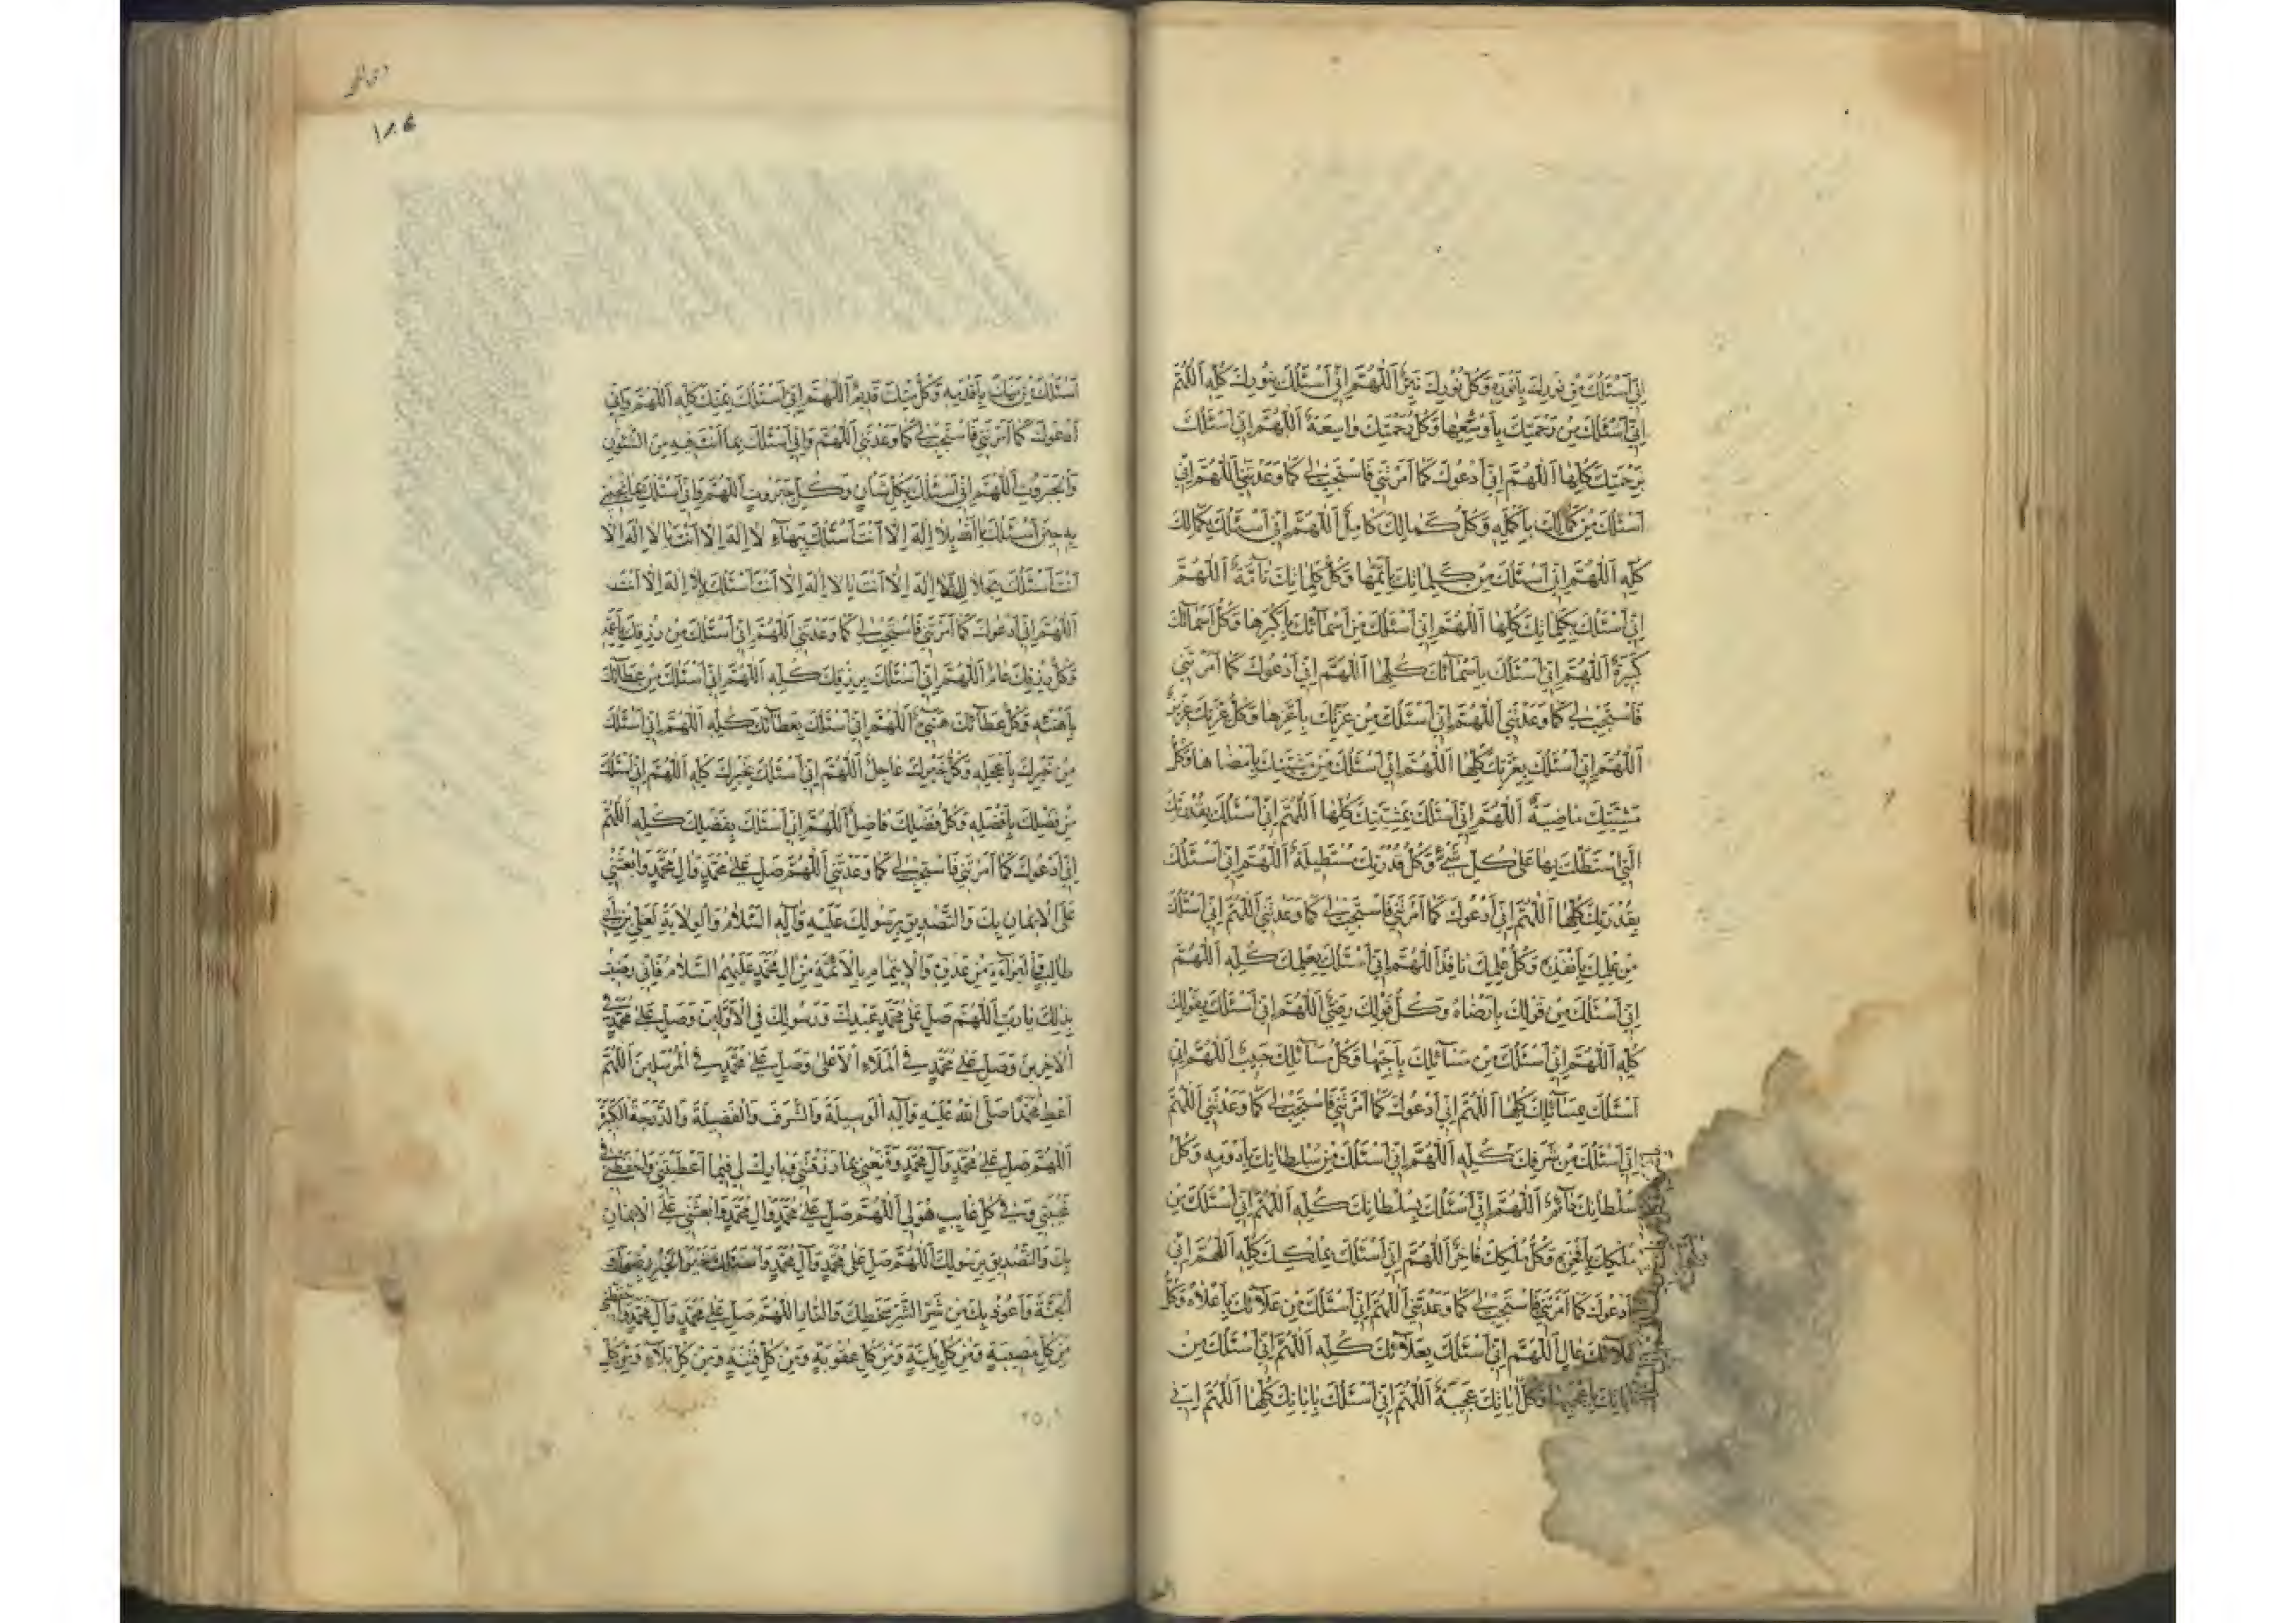 اِنّى اَسْئَلُكَ مِنْ نُورِكَ بِاَنْوَرِهِ وَكُلُّ نُورِكَ نَيِّرٌ اَللّٰهُمَّ اِنّى اَسْئَلُكَ بِنُورِكَ كُلِّهِ اَللّٰهُمَّ
اِنّى اَسْئَلُكَ مِنْ رَحْمَتِكَ بِاَوْسَعِهٰا وَكُلُّ رَحْمَتِكَ وٰاسِعَةٌ اَللّٰهُمَّ اِنّى اَسْئَلُكَ
بِرَحْمَتِكَ كُلِّهٰا اَللّٰهُمَّ اِنّى اَدْعُوكَ كَمٰا اَمَرْتَنى فَاسْتَجِبْ لى كَمٰا وَعَدْتَنى اَللّٰهُمَّ اِنّى
اَسْئَلُكَ مِنْ كَمٰالِكَ بِاَكْمَلِهِ وَكُلُّ كَمٰالِكَ كٰامِلٌ اَللّٰهُمَّ اِنّى اَسْئَلُكَ بِكَمٰالِكَ
كُلِّهِ اَللّٰهُمَّ اِنّى اَسْئَلُكَ مِنْ كَلِمٰاتِكَ بِاَتَمِّهٰا وَكُلُّ كَلِمٰاتِكَ تٰآمَّةٌ اَللّٰهُمَّ
اِنّى اَسْئَلُكَ بِكَلِمٰاتِكَ كُلِّهٰا اَللّٰهُمَّ اِنّى اَسْئَلُكَ مِنْ اَسْمٰآئِكَ بِاَكْبَرِهٰا وَكُلُّ اَسْمٰآئِكَ
كَبيرَةٌ اَللّٰهُمَّ اِنّى اَسْئَلُكَ بِاَسْمٰآئِكَ كُلِّهٰا اَللّٰهُمَّ اِنّى اَدْعُوكَ كَمٰا اَمَرْتَنى
فَاسْتَجِبْ لى كَمٰا وَعَدْتَنى اَللّٰهُمَّ اِنّى اَسْئَلُكَ مِنْ عِزَّتِكَ بِاَعَزِّهٰا وَكُلُّ عِزَّتِكَ عَزيزَةٌ
اَللّٰهُمَّ اِنّى اَسْئَلُكَ بِعِزَّتِكَ كُلِّهٰا اَللّٰهُمَّ اِنّى اَسْئَلُكَ مِنْ مَشِيَّتِكَ بِاَمْضٰاهٰا وَكُلُّ
مَشِيَّتِكَ مٰاضِيَةٌ اَللّٰهُمَّ اِنّى اَسْئَلُكَ بِمَشِيَّتِكَ كُلِّهٰا اَللّٰهُمَّ اِنّى اَسْئَلُكَ بِقُدْرَتِكَ
الَّتى اسْتَطَلْتَ بِهٰا عَلىٰ كُلِّ شَىْءٍ وَكُلُّ قُدْرَتِكَ مُسْتَطيلَةٌ اَللّٰهُمَّ اِنّى اَسْئَلُكَ
بِقُدْرَتِكَ كُلِّهٰا اَللّٰهُمَّ اِنّى اَدْعُوكَ كَمٰا اَمَرْتَنى فَاسْتَجِبْ لى كَمٰا وَعَدْتَنى اَللّٰهُمَّ اِنّى اَسْئَلُكَ
مِنْ عِلْمِكَ بِاَنْفَذِهِ وَكُلُّ عِلْمِكَ نٰافِذٌ اَللّٰهُمَّ اِنّى اَسْئَلُكَ بِعِلْمِكَ كُلِّهِ اَللّٰهُمَّ
اِنّى اَسْئَلُكَ مِنْ قَوْلِكَ بِاَرْضٰاهُ وَكُلُّ قَوْلِكَ رَضِىٌّ اَللّٰهُمَّ اِنّى اَسْئَلُكَ بِقَوْلِكَ
كُلِّهِ اَللّٰهُمَّ اِنّى اَسْئَلُكَ مِنْ مَسٰآئِلِكَ بِاَحَبِّهٰا وَكُلُّ مَسٰآئِلِكَ حَبيبَةٌ اَللّٰهُمَّ اِنّى
اَسْئَلُكَ بِمَسٰآئِلِكَ كُلِّهٰا اَللّٰهُمَّ اِنّى اَدْعُوكَ كَمٰا اَمَرْتَنى فَاسْتَجِبْ لى كَمٰا وَعَدْتَنى اَللّٰهُمَّ
اِنّى اَسْئَلُكَ مِنْ شَرَفِكَ كُلِّهِ اَللّٰهُمَّ اِنّى اَسْئَلُكَ مِنْ سُلْطٰانِكَ بِاَدْوَمِهِ وَكُلُّ
سُلْطٰانِكَ دٰآئِمٌ اَللّٰهُمَّ اِنّى اَسْئَلُكَ بِسُلْطٰانِكَ كُلِّهِ اَللّٰهُمَّ اِنّى اَسْئَلُكَ مِنْ
مُلْكِكَ بِاَفْخَرِهِ وَكُلُّ مُلْكِكَ فٰاخِرٌ اَللّٰهُمَّ اِنّى اَسْئَلُكَ بِمُلْكِكَ كُلِّهِ اَللّٰهُمَّ اِنّى
اَدْعُوكَ كَمٰا اَمَرْتَنى فَاسْتَجِبْ لى كَمٰا وَعَدْتَنى اَللّٰهُمَّ اِنّى اَسْئَلُكَ مِنْ عَلآئِكَ بِاَعْلاٰهُ وَكُلُّ
عَلآئِكَ عٰالٍ اَللّٰهُمَّ اِنّى اَسْئَلُكَ بِعَلآئِكَ كُلِّهِ اَللّٰهُمَّ اِنّى اَسْئَلُكَ مِنْ
اٰيٰاتِكَ بِاَعْجَبِهٰا وَكُلُّ اٰيٰاتِكَ عَجيبَةٌ اَللّٰهُمَّ اِنّى اَسْئَلُكَ بِاٰيٰاتِكَ كُلِّهٰا اَللّٰهُمَّ اِنّى
اَسْئَلُكَ مِنْ مَنِّكَ بِاَقْدَمِهِ وَكُلُّ مَنِّكَ قَديمٌ اَللّٰهُمَّ اِنّى اَسْئَلُكَ بِمَنِّكَ كُلِّهِ اَللّٰهُمَّ وَاِنّى
اَدْعُوكَ كَمٰا اَمَرْتَنى فَاسْتَجِبْ لى كَمٰا وَعَدْتَنى اَللّٰهُمَّ وَاِنّى اَسْئَلُكَ بِمٰا اَنْتَ فيهِ مِنَ الشُّئُونِ
وَالْجَبَرُوتِ اَللّٰهُمَّ اِنّى اَسْئَلُكَ بِكُلِّ شَاْنٍ وَكُلِّ جَبَرُوتٍ اَللّٰهُمَّ وَاِنّى اَسْئَلُكَ بِمٰا تُجيبُنى
بِهِ حينَ اَسْئَلُكَ يٰا اَللهُ بِلاٰ اِلٰهَ اِلاّٰ اَنْتَ اَسْئَلُكَ بِبَهٰآءِ لاٰ اِلٰهَ اِلاّٰ اَنْتَ يٰا لاٰ اِلٰهَ اِلاّٰ
اَنْتَ اَسْئَلُكَ بِجَلاٰلِ لاٰ اِلٰهَ اِلاّٰ اَنْتَ يٰا لاٰ اِلٰهَ اِلاّٰ اَنْتَ اَسْئَلُكَ بِلاٰ اِلٰهَ اِلاّٰ اَنْتَ
اَللّٰهُمَّ اِنّى اَدْعُوكَ كَمٰا اَمَرْتَنى فَاسْتَجِبْ لى كَمٰا وَعَدْتَنى اَللّٰهُمَّ اِنّى اَسْئَلُكَ مِنْ رِزْقِكَ بِاَعَمِّهِ
وَكُلُّ رِزْقِكَ عٰامٌّ اَللّٰهُمَّ اِنّى اَسْئَلُكَ بِرِزْقِكَ كُلِّهِ اَللّٰهُمَّ اِنّى اَسْئَلُكَ مِنْ عَطٰآئِكَ
بِاَهْنَئِهِ وَكُلُّ عَطٰآئِكَ هَنىءٌ اَللّٰهُمَّ اِنّى اَسْئَلُكَ بِعَطٰآئِكَ كُلِّهِ اَللّٰهُمَّ اِنّى اَسْئَلُكَ
مِنْ خَيْرِكَ بِاَعْجَلِهِ وَكُلُّ خَيْرِكَ عٰاجِلٌ اَللّٰهُمَّ اِنّى اَسْئَلُكَ بِخَيْرِكَ كُلِّهِ اَللّٰهُمَّ اِنّى اَسْئَلُكَ
مِنْ فَضْلِكَ بِاَفْضَلِهِ وَكُلُّ فَضْلِكَ فٰاضِلٌ اَللّٰهُمَّ اِنّى اَسْئَلُكَ بِفَضْلِكَ كُلِّهِ اَللّٰهُمَّ
اِنّى اَدْعُوكَ كَمٰا اَمَرْتَنى فَاسْتَجِبْ لى كَمٰا وَعَدْتَنى اَللّٰهُمَّ صَلِّ عَلىٰ مُحَمَّدٍ وَاٰلِ مُحَمَّدٍ وَابْعَثْنى
عَلَى الْاِيمٰانِ بِكَ وَالتَّصْديقِ بِرَسُولِكَ عَلَيْهِ وَاٰلِهِ السَّلاٰمُ وَالْوِلاٰيَةِ لِعَلِىِّ بْنِ اَبى
طٰالِبٍ وَالْبَرٰآءَةِ مِنْ عَدُوِّهِ وَالْاِيتِمٰامِ بِالْاَئِمَّةِ مِنْ اٰلِ مُحَمَّدٍ عَلَيْهِمُ السَّلاٰمُ فَاِنّى رَضيتُ
بِذٰلِكَ يٰا رَبِّ اَللّٰهُمَّ صَلِّ عَلىٰ مُحَمَّدٍ عَبْدِكَ وَرَسُولِكَ فِى الْاَوَّلينَ وَصَلِّ عَلىٰ مُحَمَّدٍ فِى
الْاٰخِرينَ وَصَلِّ عَلىٰ مُحَمَّدٍ فِى الْمَلَاءِ الْاَعْلىٰ وَصَلِّ عَلىٰ مُحَمَّدٍ فِى الْمُرْسَلينَ اَللّٰهُمَّ
اَعْطِ مُحَمَّدًا صَلَّى اللهُ عَلَيْهِ وَاٰلِهِ الْوَسيلَةَ وَالشَّرَفَ وَالْفَضيلَةَ وَالدَّرَجَةَ الْكَبيرَةَ
اَللّٰهُمَّ صَلِّ عَلىٰ مُحَمَّدٍ وَاٰلِ مُحَمَّدٍ وَقَنِّعْنى بِمٰا رَزَقْتَنى وَبٰارِكْ لى فيمٰا اَعْطَيْتَنى وَاحْفَظْنى فى
غَيْبَتى وَفى كُلِّ غٰايِبٍ هُوَ لى اَللّٰهُمَّ صَلِّ عَلىٰ مُحَمَّدٍ وَاٰلِ مُحَمَّدٍ وَابْعَثْنى عَلَى الْاِيمٰانِ
بِكَ وَالتَّصْديقِ بِرَسُولِكَ اَللّٰهُمَّ صَلِّ عَلىٰ مُحَمَّدٍ وَاٰلِ مُحَمَّدٍ وَاَسْئَلُكَ خَيْرَ الْخَيْرِ رِضْوٰانَكَ
وَالْجَنَّةَ وَاَعُوذُ بِكَ مِنْ شَرِّ الشَّرِّ سَخَطِكَ وَالنّٰارِ اَللّٰهُمَّ صَلِّ عَلىٰ مُحَمَّدٍ وَاٰلِ مُحَمَّدٍ وَاحْفَظْنى
مِنْ كُلِّ مُصيبَةٍ وَمِنْ كُلِّ بَلِيَّةٍ وَمِنْ كُلِّ عُقُوبَةٍ وَمِنْ كُلِّ فِتْنَةٍ وَمِنْ كُلِّ بَلاٰءٍ وَمِنْ كُلِّ